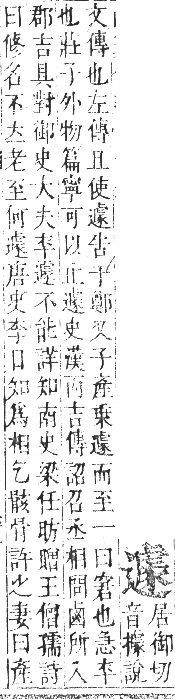 遽
居御切
音據說
文傳也左傳且使遽告于鄭又子產乘遽而至一曰窘也急卒
也莊子外物篇寧可以止遽史漢丙吉傳詔召丞相問鹵所入
郡吉具對御史大夫卒遽不能詳知南史梁任昉贈王僧孺詩
曰修名不立老至何遽唐史李日知為相乞骸骨許之妻曰產